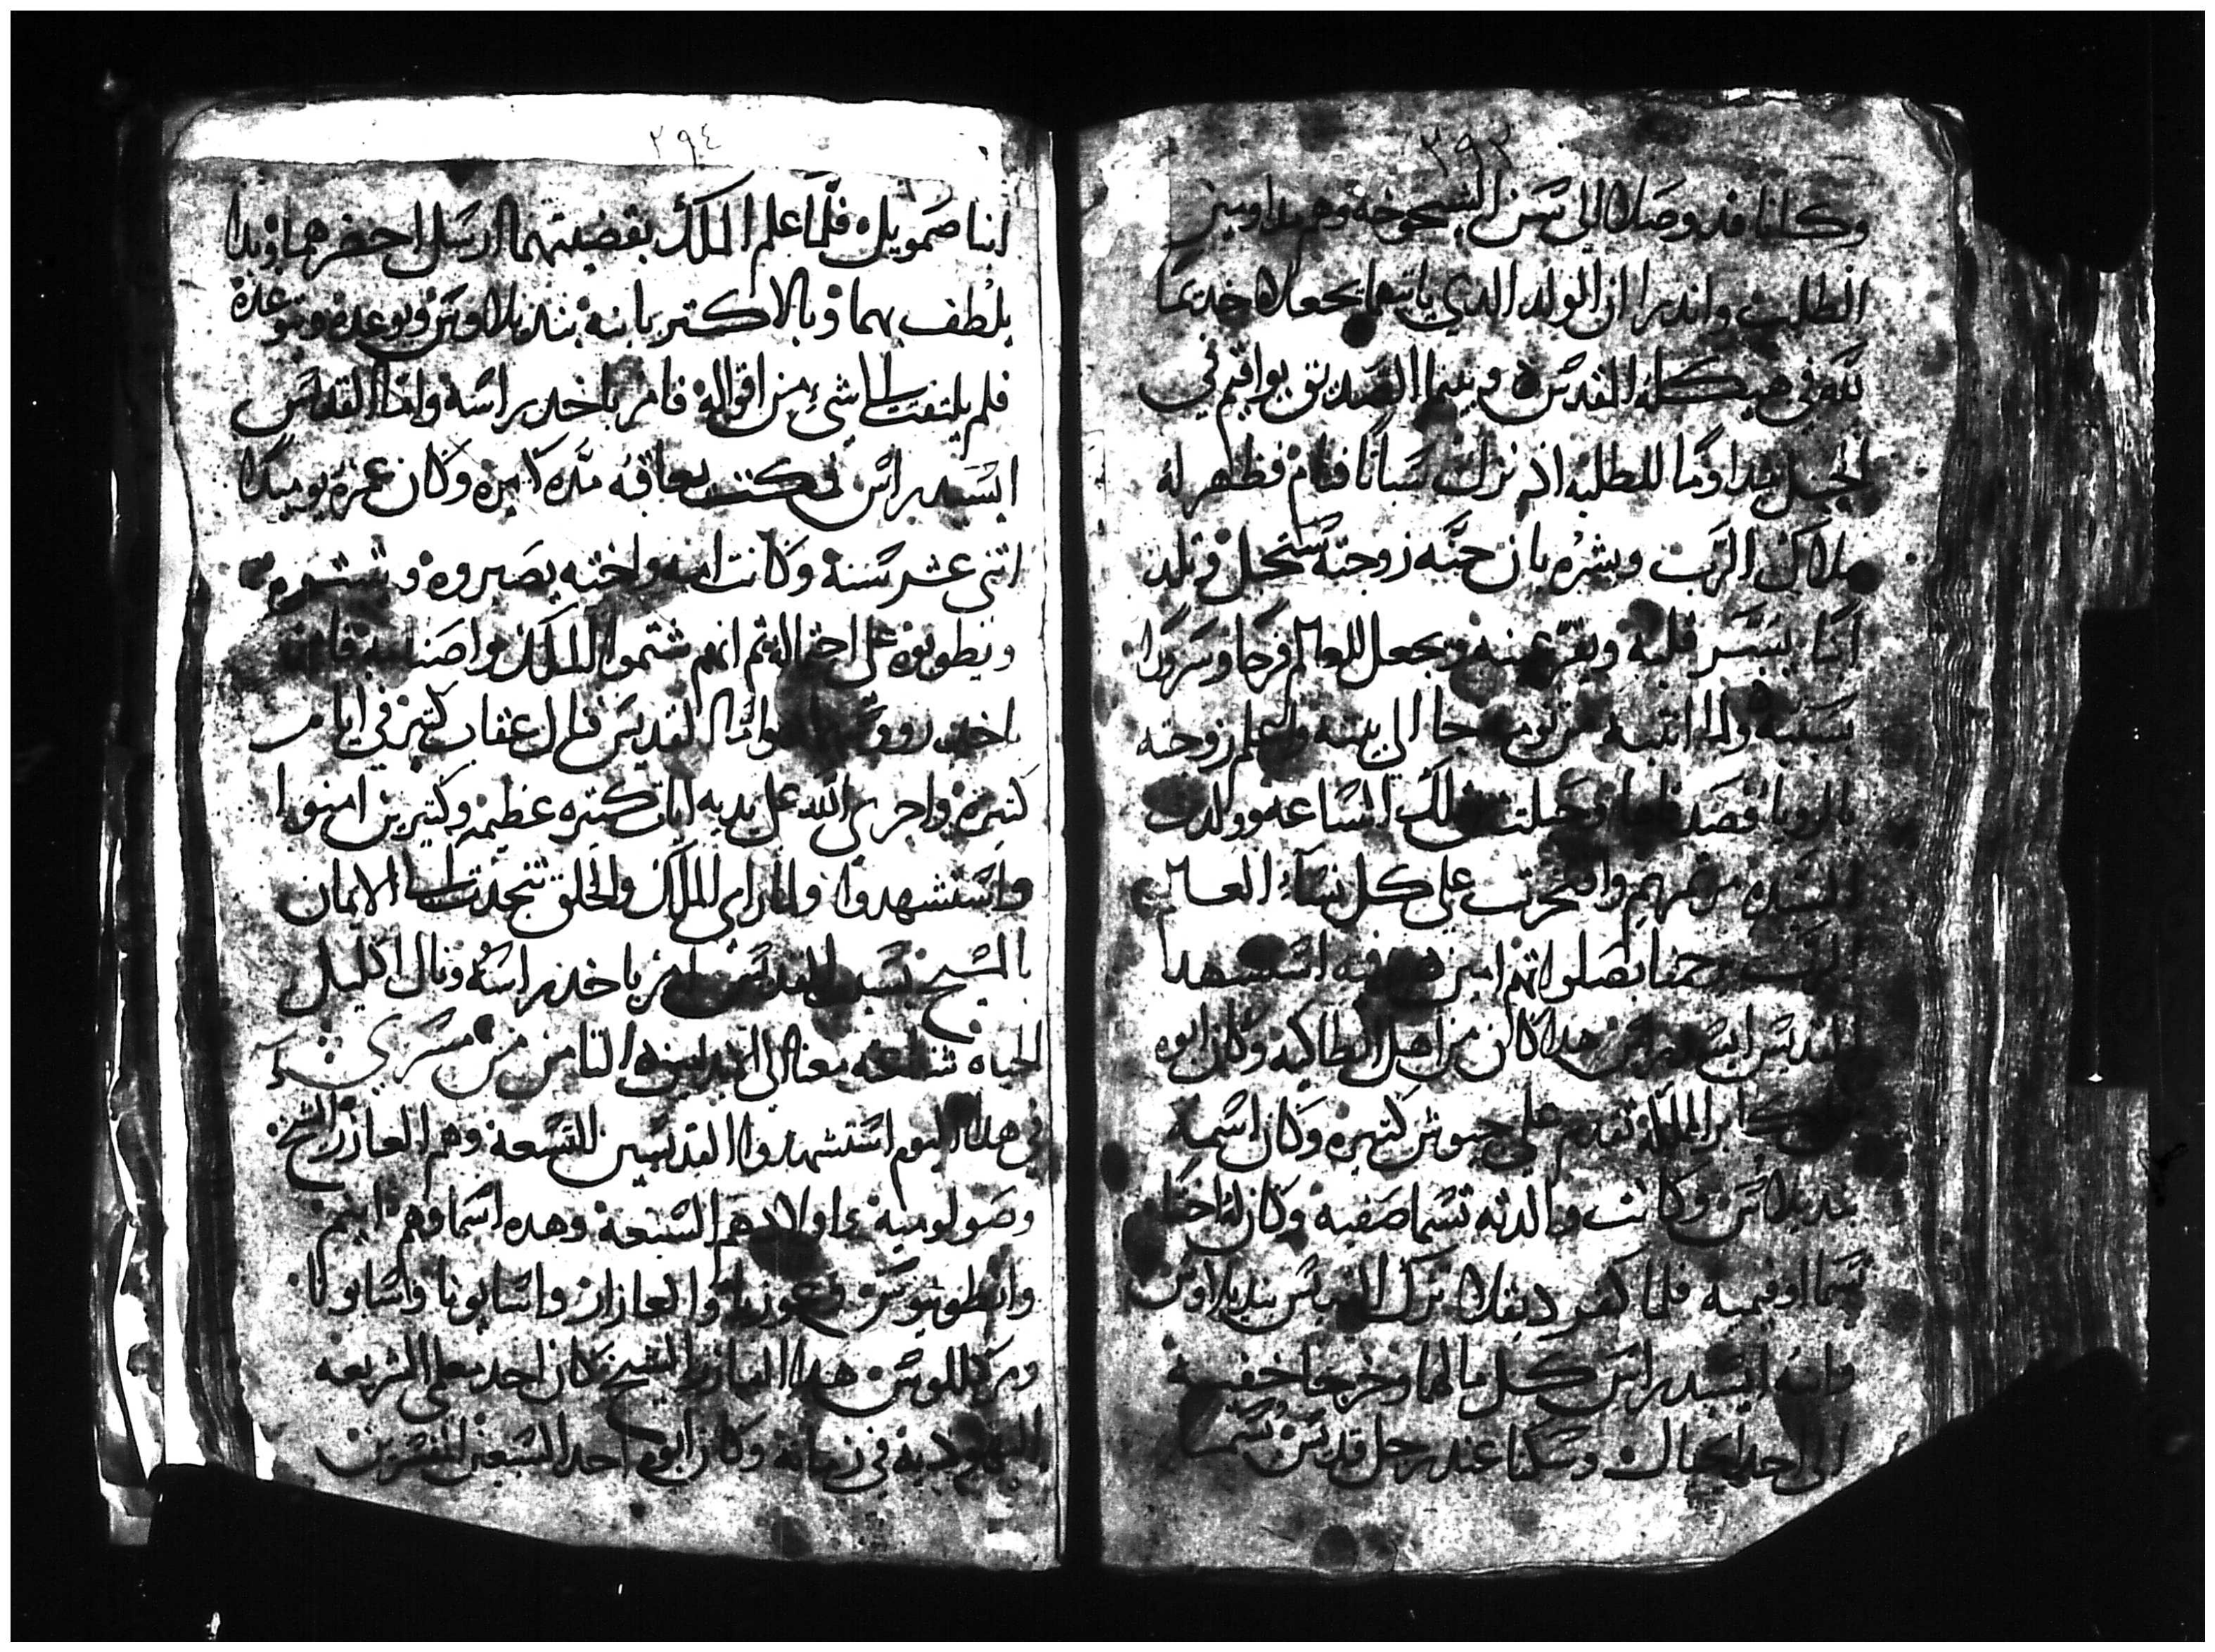 ٣٩٣
وكانا قد وصلا الى سن الشيخوخه وهم مداومين
الطلبت واندرا ان المولد الدي ياتيهما يجعلاه خديمًا
لله في هيكله المقدس وبينما الصديق يواقيم في
الجبل مداومًا للطلبه اذ نزل سباتًا فنام فظهر له
ملاك الرب وبشره بان حنَّه زوجته ستحبل وتلد
ابنا يبشر قلبه ويقر عينه ويجعل للعالم فرحا وسرورًا
بسببه ولما انتبه من نومه جا الى بيته واعلم زوجته
بالرويا فصدقتها وحبلت من تلك الساعه وولدت
السيده مرتمريم وافتخرت على كل نساء العالم
الرب يرحمنا بصلواتهم امين وفيه استشهد
القديس ايسيدراس هدا كان من اهل انطاكيه وكان ابوه
من اكابر المملكة تقدم على جيوش كثيره وكان اسمه
بنديلاس وكانت والدته تسما صفيه وكان له اختا
تسما اوفميه فلما كفر ديقلا ترك القديس بنديلاوس
وابنه ايسيدراس كل مالهما وخرجا خفيه
الى احد الجبال وسكنا عند رجل قديس يسما
٢٩٤
انبا صمويل فلما علم الملك بقضيتهما ارسل احضرهما وبدا
يلطف بهما وبالاكتر بابنه بنديلاوس ويوعده ويتوعده
فلم يلتفت الى شيء من اقواله فامر باخد راسه واما القديس
ايسيدراس فمكت يعاقبه مده كبيره وكان عمره يوميدًا
اتني عشر سنة وكانت امه واخته يصبروه و
ويطوبوه على احتماله ثم انهم شتموا الملك واصنامه فامر
باخد رووسهم واما القديس فنال عقاب كتير في ايام
كتيره واجرى الله على يديه ايات كتيره عظيمه وكتيرين امنوا
واستشهدوا ولما راى الملك والخلق تنجدت الى الايمان
بالمسيح بسبب القديس امر باخد راسه ونال اكليل
الحياه شفاعته معنا الى الابد امين اليوم التامن من مسري
في هدا اليوم استشهدوا القديسين التسعة وهم العازر الشيخ
وصولومية واولادهم السبعة وهده اسماوهم ابيم
وانطونيوس وعوزيا والعازار واسايونا واسابونا
ومركللوس هدا العازر الشيخ كان احد معلمي الشريعه
اليهودية في زمانه وكان ابوه احد السبعين المفسرين